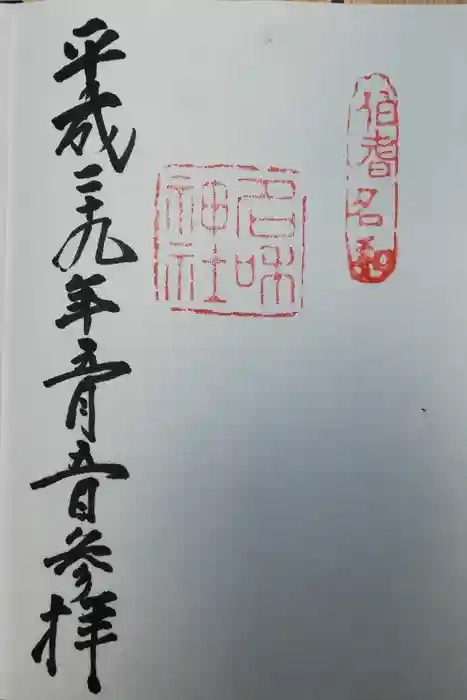 伯耆名和
名和
神社
平成二十九年五月五日参拝